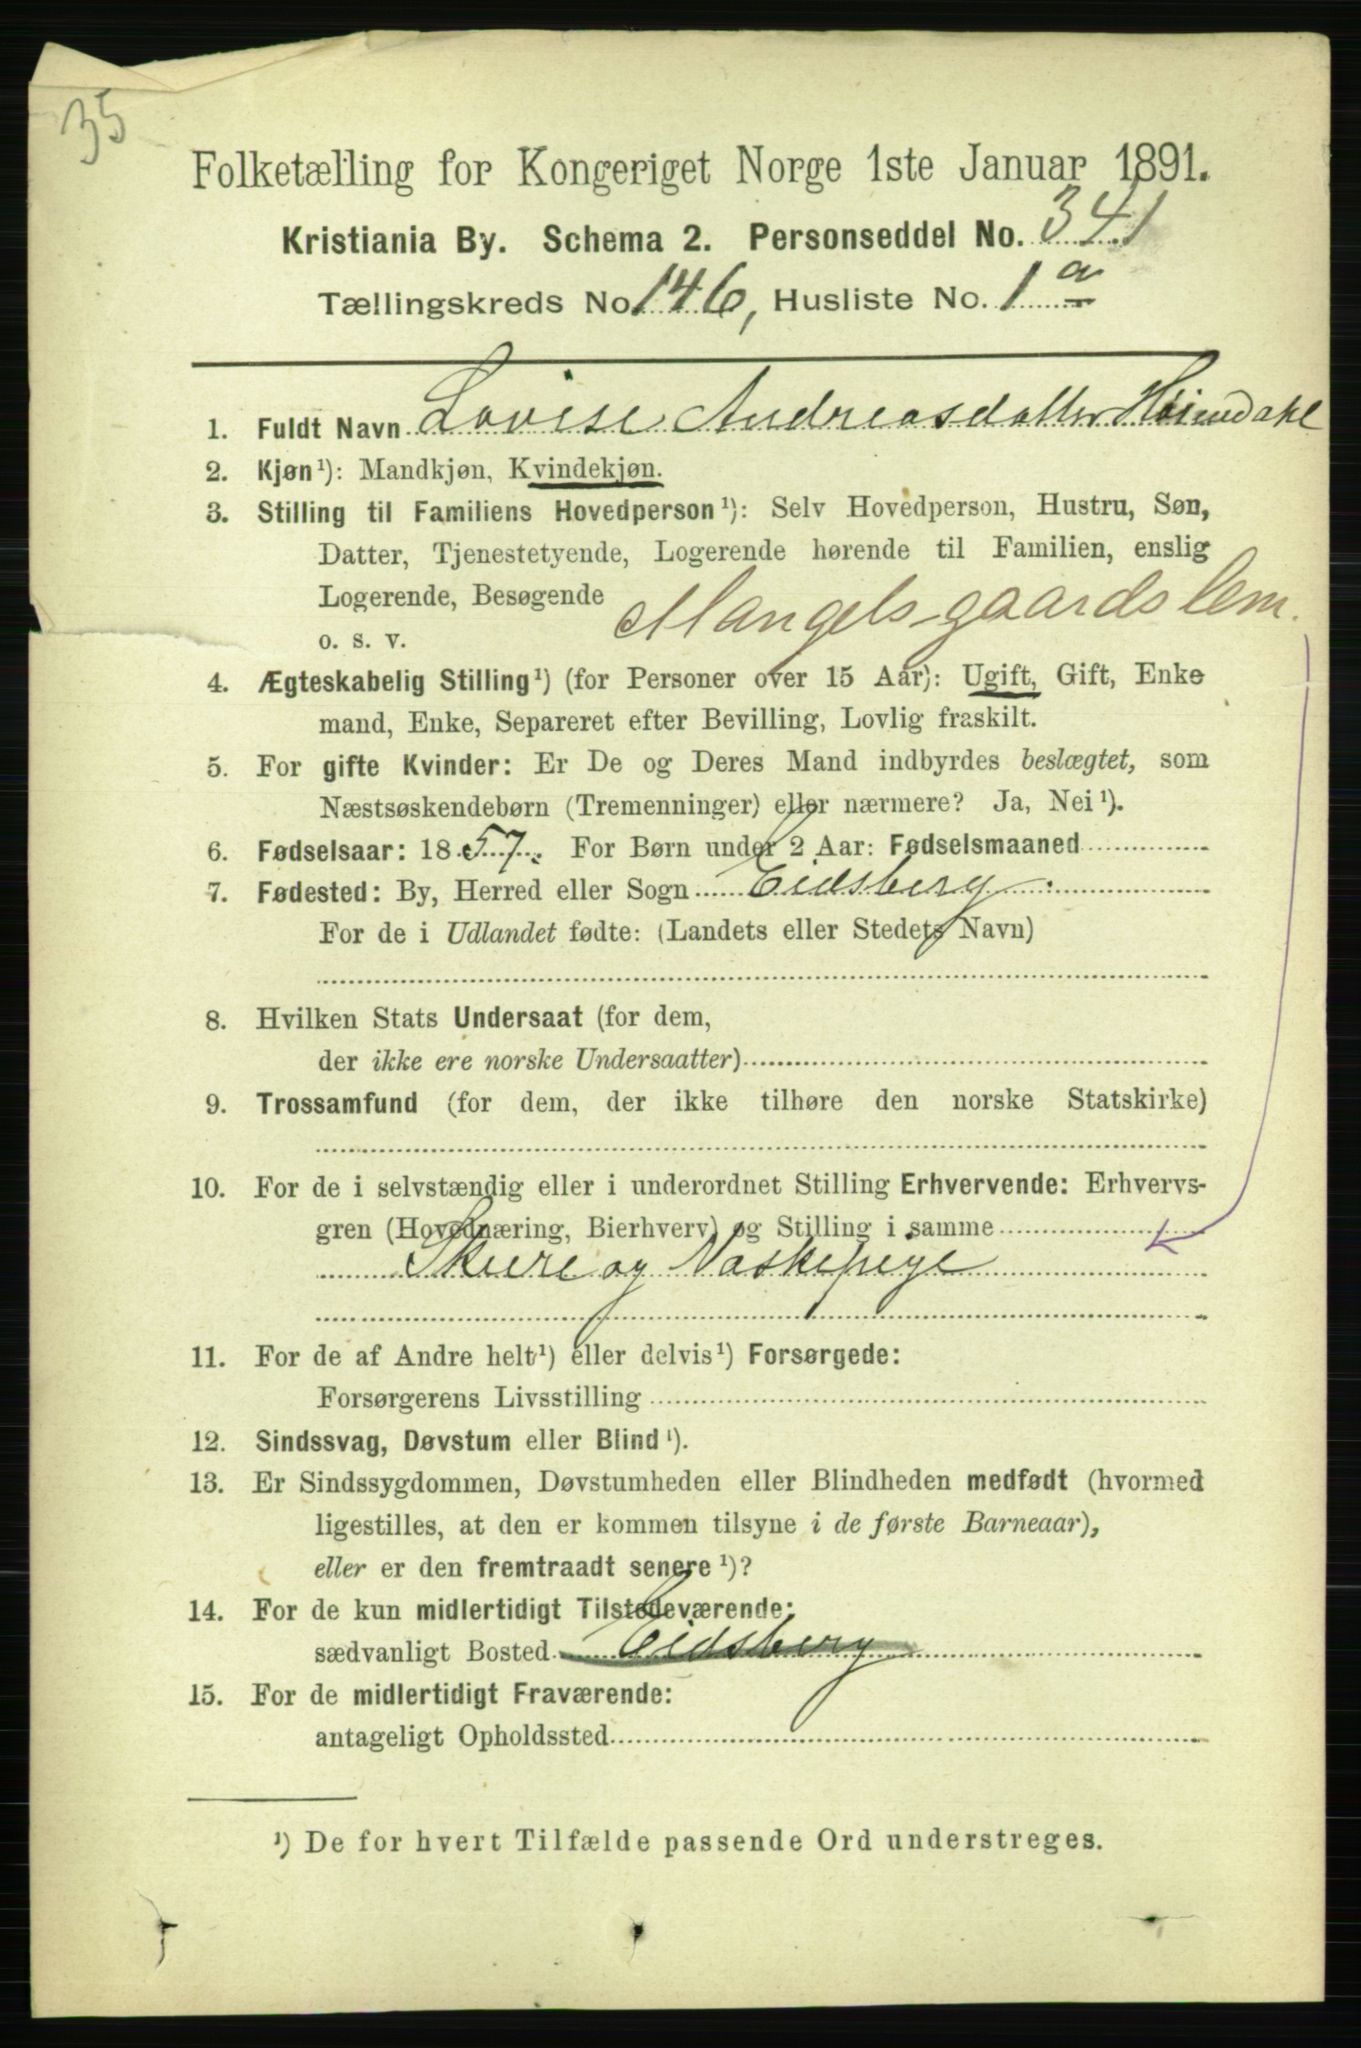 35
Folketælling for Kongeriget Norge 1ste Januar 1891.
Kristiania By. Schema 2. Personseddel No. 341
Tællingskreds No 146, Husliste No. 1 a
1. Fuldt Navn Lovise Andreasdatter Höiendahl
2. Kjøn¹): Mandkjøn, Kvindekjøn.
3. Stilling til Familiens Hovedperson¹): Selv Hovedperson, Hustru, Søn,
Datter, Tjenestetyende, Logerende hørende til Familien, enslig
Logerende, Besøgende
o. s. v. Mangelsgaardslem.
4. Ægteskabelig Stilling¹) (for Personer over 15 Aar): Ugift, Gift, Enke
mand, Enke, Separeret efter Bevilling, Lovlig fraskilt.
5. For gifte Kvinder: Er De og Deres Mand indbyrdes beslægtet, som
Næstsøskendebørn (Tremenninger) eller nærmere? Ja, Nei¹).
6. Fødselsaar: 1857. For Børn under 2 Aar: Fødselsmaaned
7. Fødested: By, Herred eller Sogn Eidsberg
For de i Udlandet fødte: (Landets eller Stedets Navn)
8. Hvilken Stats Undersaat (for dem,
der ikke ere norske Undersaatter)
9. Trossamfund (for dem, der ikke tilhøre den norske Statskirke)
10. For de i selvstændig eller i underordnet Stilling Erhvervende: Erhvervs-
gren (Hovednæring, Bierhverv) og Stilling i samme
Skure og Vaskepige
11. For de af Andre helt¹) eller delvis¹) Forsørgede:
Forsørgerens Livsstilling
12. Sindssvag, Døvstum eller Blind¹).
13. Er Sindssygdommen, Døvstumheden eller Blindheden medfødt (hvormed
ligestilles, at den er kommen tilsyne i de første Barneaar),
eller er den fremtraadt senere¹)?
14. For de kun midlertidigt Tilstedeværende:
sædvanligt Bosted Eidsberg
15. For de midlertidigt Fraværende:
antageligt Opholdssted
¹) De for hvert Tilfælde passende Ord understreges.